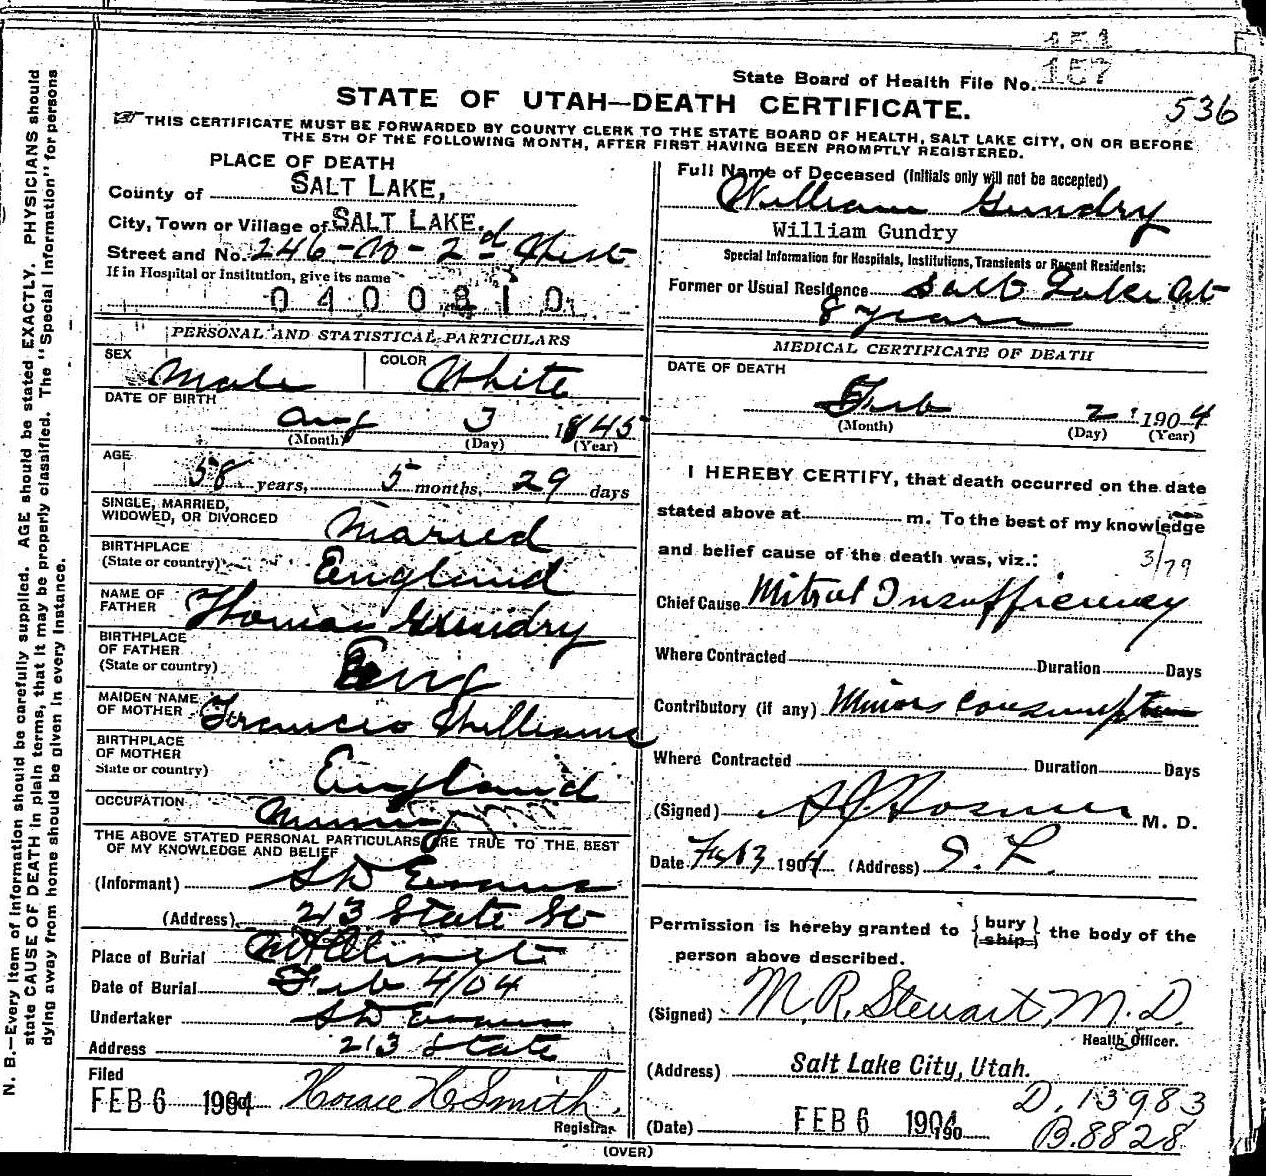 151
157
State Board of Health File No.
536
STATE OF UTAH—DEATH CERTIFICATE.
THIS CERTIFICATE MUST BE FORWARDED BY COUNTY CLERK TO THE STATE BOARD OF HEALTH, SALT LAKE CITY, ON OR BEFORE
THE 5TH OF THE FOLLOWING MONTH, AFTER FIRST HAVING BEEN PROMPTLY REGISTERED.
PLACE OF DEATH
County of SALT LAKE,
City, Town or Village of SALT LAKE.
Street and No. 246-W-2d West
If in Hospital or Institution, give its name
0400810
PERSONAL AND STATISTICAL PARTICULARS
SEX Male COLOR White
DATE OF BIRTH
Aug 3 1845
(Month) (Day) (Year)
AGE
58 years, 5 months, 29 days
SINGLE, MARRIED,
WIDOWED, OR DIVORCED Maried
BIRTHPLACE
(State or country) England
NAME OF
FATHER Thomas Gundry
BIRTHPLACE
OF FATHER
(State or country) Eng
MAIDEN NAME
OF MOTHER Frances Williams
BIRTHPLACE
OF MOTHER
State or country) England
OCCUPATION Mining
THE ABOVE STATED PERSONAL PARTICULARS ARE TRUE TO THE BEST
OF MY KNOWLEDGE AND BELIEF
(Informant) S D Evans
(Address) 213 State St
Place of Burial Mt Olivet
Date of Burial Feb 4/04
Undertaker S D Evans
Address 213 State
Filed
FEB 6 1904 Horace H. Smith.
Registrar
Full Name of Deceased (Initials only will not be accepted)
William Gundry
William Gundry
Special Information for Hospitals, Institutions, Transients or Recent Residents:
Former or Usual Residence Salt Lake
8 years
MEDICAL CERTIFICATE OF DEATH
DATE OF DEATH
Feb 2 1904
(Month) (Day) (Year)
I HEREBY CERTIFY, that death occurred on the date
stated above at m. To the best of my knowledge
and belief cause of the death was, viz.: 3/79
Chief Cause Mitral Insufficiency
Where Contracted Duration Days
Contributory (if any) Miners Consumption
Where Contracted Duration Days
(Signed) M. D.
Date Feb 3 1904 (Address)
Permission is hereby granted to { bury
ship } the body of the
person above described.
(Signed) M. R. Stewart, M. D.
Health Officer.
(Address) Salt Lake City, Utah.
D. 13983
(Date) FEB 6 1904 190
B. 8828
(OVER)
N. B.—Every item of information should be carefully supplied. AGE should be stated EXACTLY. PHYSICIANS should
state CAUSE OF DEATH in plain terms, that it may be properly classified. The "Special Information" for persons
dying away from home should be given in every instance.